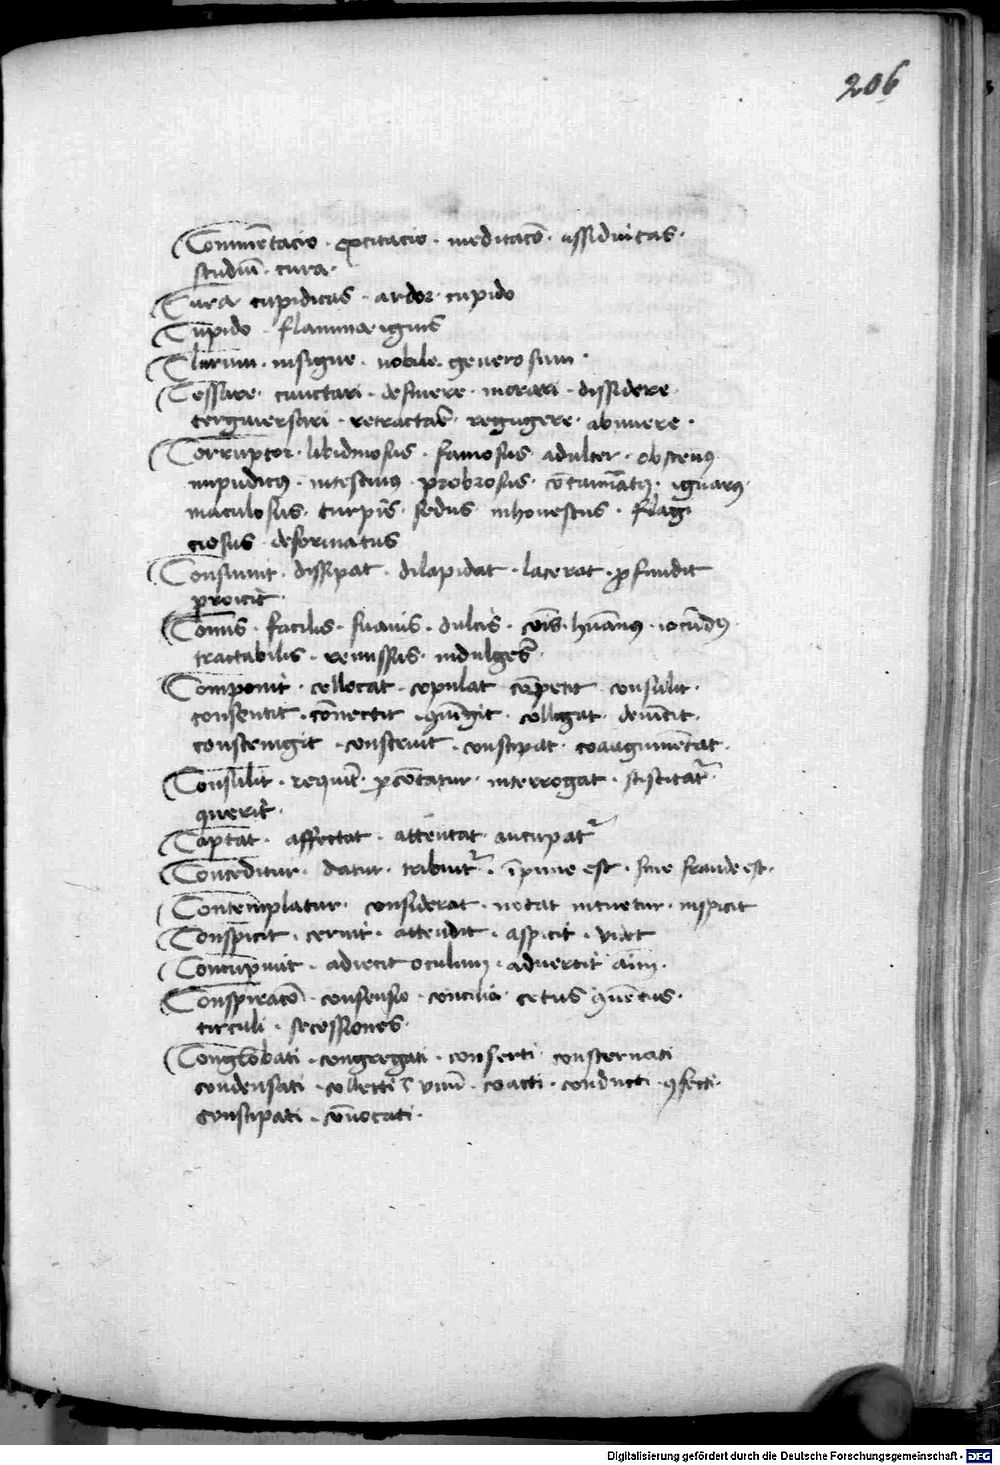 206
Com̄entacio · excitacio · meditac̄o · assiduitas ·
studiū · cura ·
Cura cupiditas · ardor · cupido
Cupido · flamma · ignis
Clarum · insigne · nobile · generosum ·
Cessare · cunctari · desinere · morari · dissidere
tergiversari · retractar̄ · abnuere ·
Corruptor · libidinosus · famosus adulter · obscenꝰ
impudicꝰ · intestinꝰ · probrosus · cōtaminatꝰ · ignarꝰ ·
maculosus · turpis · fedus inhonestus · flagi
ciosus deformatus
Consumit · dissipat · dilapidat · lacerat · ꝓfundit
proicit
Comis · facilis · suauis · dulcis · cōis · hūanꝰ · iocūdꝰ
tractabilis · remissus · indulgēs ·
Componit · collocat · copulat cōpetit consulit ·
consentit · cōnectit · ꝯiūgit · colligat · deuīcit ·
constringit · construit · constipat · coaugmētat ·
Consulit · requirit · ꝑcōtatur · interrogat · sciscitat᷑
querit ·
Captat · affectat · attentat aucupat᷑
Conceditur · datur · tribuit᷑ · īpune est · sine fraude est ·
Contemplatur · considerat · notat intuetur · inspicit
Conspicit · cernit · attendit · aspicit · videt
Concupiuit · adiecit oculum · aduertit aīm ·
Conspirac̄o · consensio · concilia cetus ꝯuētus ·
circuli · secessiones ·
Conglobati · congregati · conserti consternati
condensati · collecti ī vnū · coacti · conducti · ꝯfecti ·
constipati · cōuocati ·
Digitalisierung gefördert durch die Deutsche Forschungsgemeinschaft - DFG